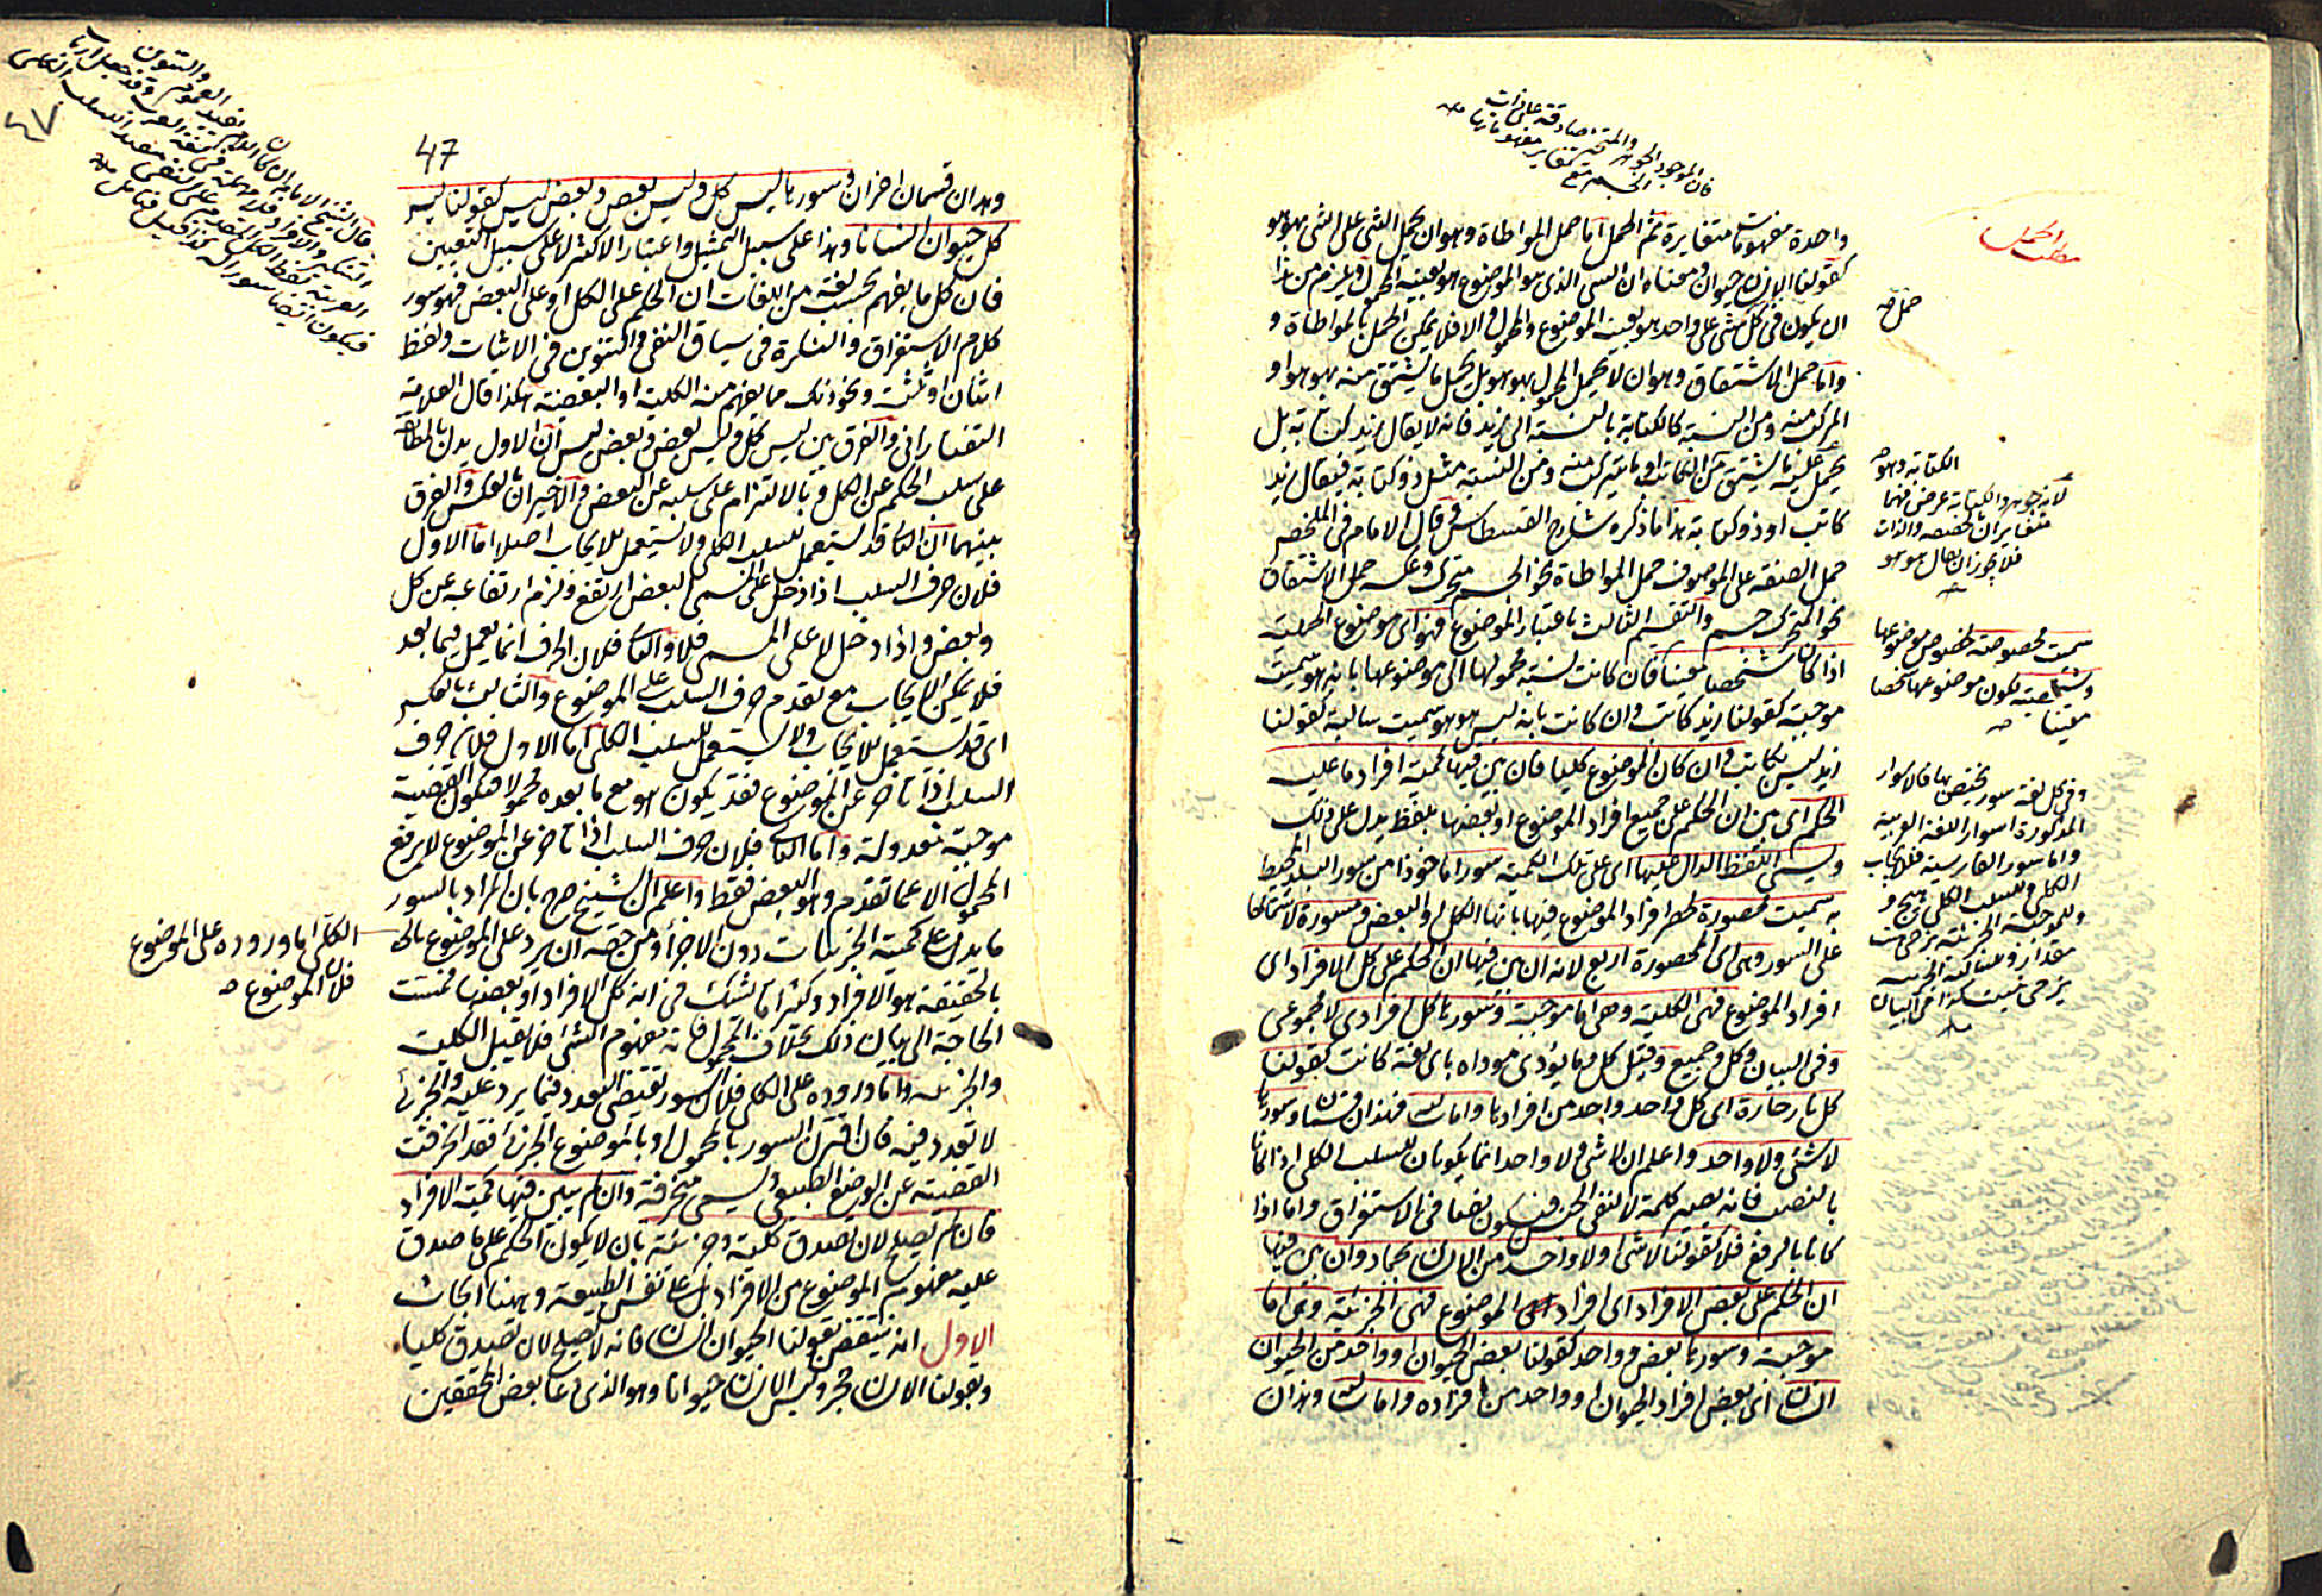 فان الموجود والجوهر والمتحيز صادقة على ذات
الجسم مع تغاير مفهوماتها
واحدة مفهومات متغايرة ثم الحمل اما حمل المواطاة وهو ان يحمل الشئ على الشئ بهو هو
كقولنا الانسان حيوان ومعناه ان الشئ الذى هو الموضوع هو بعينه المحمول ويلزم من هذا
ان يكون فى كل شئ على واحد هو بعينه الموضوع والمحمول والا فلا يمكن الحمل بالمواطاة و
واما حمل الاشتقاق وهو ان لا يحمل المحمول بهو هو بل يحمل ما يشتق منه بهو هو او
المركب منه ومن النسبة كالكتابة بالنسبة الى زيد فانه لا يقال زيد كتابة بل
يحمل عليه ما يشتق من الكتابة او ما يتركب منه ومن النسبة مثل ذو كتابة فيقال زيد
كاتب او ذو كتابة هذا ما ذكره شارح القسطاس وقال الامام فى الملخص
حمل الصفة على الموصوف حمل المواطاة نحو الجسم متحرك وعكسه حمل الاشتقاق
نحو المتحرك جسم والتقسيم الثالث باعتبار الموضوع فهو اى موضوع الحملية
اذا كان شخصا معينا فان كانت نسبة محمولها الى موضوعها بانه هو سميت
موجبة كقولنا زيد كاتب وان كانت بانه ليس هو هو سميت سالبة كقولنا
زيد ليس بكاتب وان كان الموضوع كليا فان بين فيها كمية افراد ما عليه
الحكم اى بين ان الحكم على جميع افراد الموضوع او بعضها بلفظ يدل على ذلك
ويسمى اللفظ الدال عليها اى على تلك الكمية سورا ماخوذا من سور البلد المحيط
به سميت محصورة لحصر افراد الموضوع فيها بانها الكل او البعض ومسورة لاشتمالها
على السور وهى اى المحصورة اربع لانه ان بين فيها ان الحكم على كل الافراد اى
افراد الموضوع فهى الكلية وهى اما موجبة وسورها كل افرادى لا مجموعى
وفى البيان وكل وجميع وقيل كل وما يؤدى موداه باى لغة كانت كقولنا
كل نار حارة اى كل واحد واحد من افرادها واما سالبة فهذان قسمان وسورها
لا شئ ولا واحد واعلم ان لا شئ ولا واحد انما يكونان للسلب الكلى اذا كانا
بالنصب فانه يصير كلمة لا لنفى الجنس فيكون نصا فى الاستغراق واما اذا
كانا بالرفع فلا كقولنا لا شئ ولا واحد من الانسان بجماد وان بين فيها
ان الحكم على بعض الافراد اى افراد الموضوع فهى الجزئية وهى اما
موجبة وسورها بعض وواحد كقولنا بعض الحيوان او واحد من الحيوان
انسان اى بعض افراد الحيوان او واحد من افراده واما سالبة وهذان
مطلب الحمل
حمل
الكتابة وهو
لانه جوهر والكتابة عرض فهما
متغايران والذات
فلا يجوز ان يقال هو هو
سميت مخصوصة لخصوص موضوعها
وشخصية لكون موضوعها شخصا
معينا
وفى كل لغة سور يختص بها فالاسوار
المذكورة اسوار اللغة العربية
واما سور الفارسية فللايجاب
الكلى وللسلب الكلى هيچ و
وللموجبة الجزئية برخى هست
وللسالبة الجزئية
برخى نيست كذا فى البيان
47
٤٧
وهذان قسمان اخران وسورها ليس كل وليس بعض وبعض ليس كقولنا ليس
كل حيوان انسانا وهذا على سبيل التمثيل واعتبار الاكثر لا على سبيل التعيين
فان كل ما يفهم بحسب لغة من اللغات ان الحكم على الكل او على البعض فهو سور
كلام الاستغراق والنكرة فى سياق النفى والتنوين فى الاثبات ولفظ
اثنان او ثلث ونحو ذلك مما يفهم منه الكلية او البعضية هكذا قال العلامة
التفتازانى والفرق بين ليس كل وليس بعض وبعض ليس ان الاول يدل بالمطابقة
على سلب الحكم عن الكل وبالالتزام على سلبه عن البعض والاخيران بالعكس والفرق
بينهما ان الثانى قد يستعمل للسلب الكلى ولا يستعمل للايجاب اصلا اما الاول
فلان حرف السلب اذا دخل على مسمى البعض ارتفع ولزم ارتفاعه عن كل
وبعض واذا دخل لا على المسمى فلا والثانى فلان الحرف انما يعمل فيما بعد
فلا يمكن الايجاب مع تقدم حرف السلب على الموضوع والثالث بالعكس
اى قد يستعمل للايجاب ولا يستعمل للسلب الكلى اما الاول فلان حرف
السلب اذا تاخر عن الموضوع فقد يكون هو مع ما بعده محمولا فتكون القضية
موجبة معدولة واما الثانى فلان حرف السلب اذا تاخر عن الموضوع لا يرفع
المحمول الا عما تقدم وهو البعض فقط واعلم ان الشيخ صرح بان المراد بالسور
ما يدل على كمية الجزئيات دون الاجزاء ومن حقه ان يرد على الموضوع
بالحقيقة هو الافراد وكثيرا ما تشك فى انه كل الافراد او بعضها فمست
الحاجة الى بيان ذلك بخلاف المحمول فانه مفهوم الشئ فلا يقبل الكلية
والجزئية واما وروده على الكلى فلان السور يقتضى التعدد فيما يرد عليه والجزئى
لا تعدد فيه فان اقترن السور بالمحمول او بالموضوع الجزئى فقد انحرفت
القضية عن الوضع الطبيعى ويسمى منحرفة وان لم يبين فيها كمية الافراد
فان لم يصلح لان تصدق كلية وجزئية بان لا يكون الحكم على ما صدق
عليه مفهوم الموضوع من الافراد بل على نفس الطبيعة وههنا ابحاث
الاول انه ينتقض بقولنا الحيوان انسان فانه لا يصلح لان تصدق كليا
وبقولنا الانسان حجر وليس الانسان حيوانا وهو الذى دعا بعض المحققين
الكلى اما وروده على الموضوع
فلان الموضوع